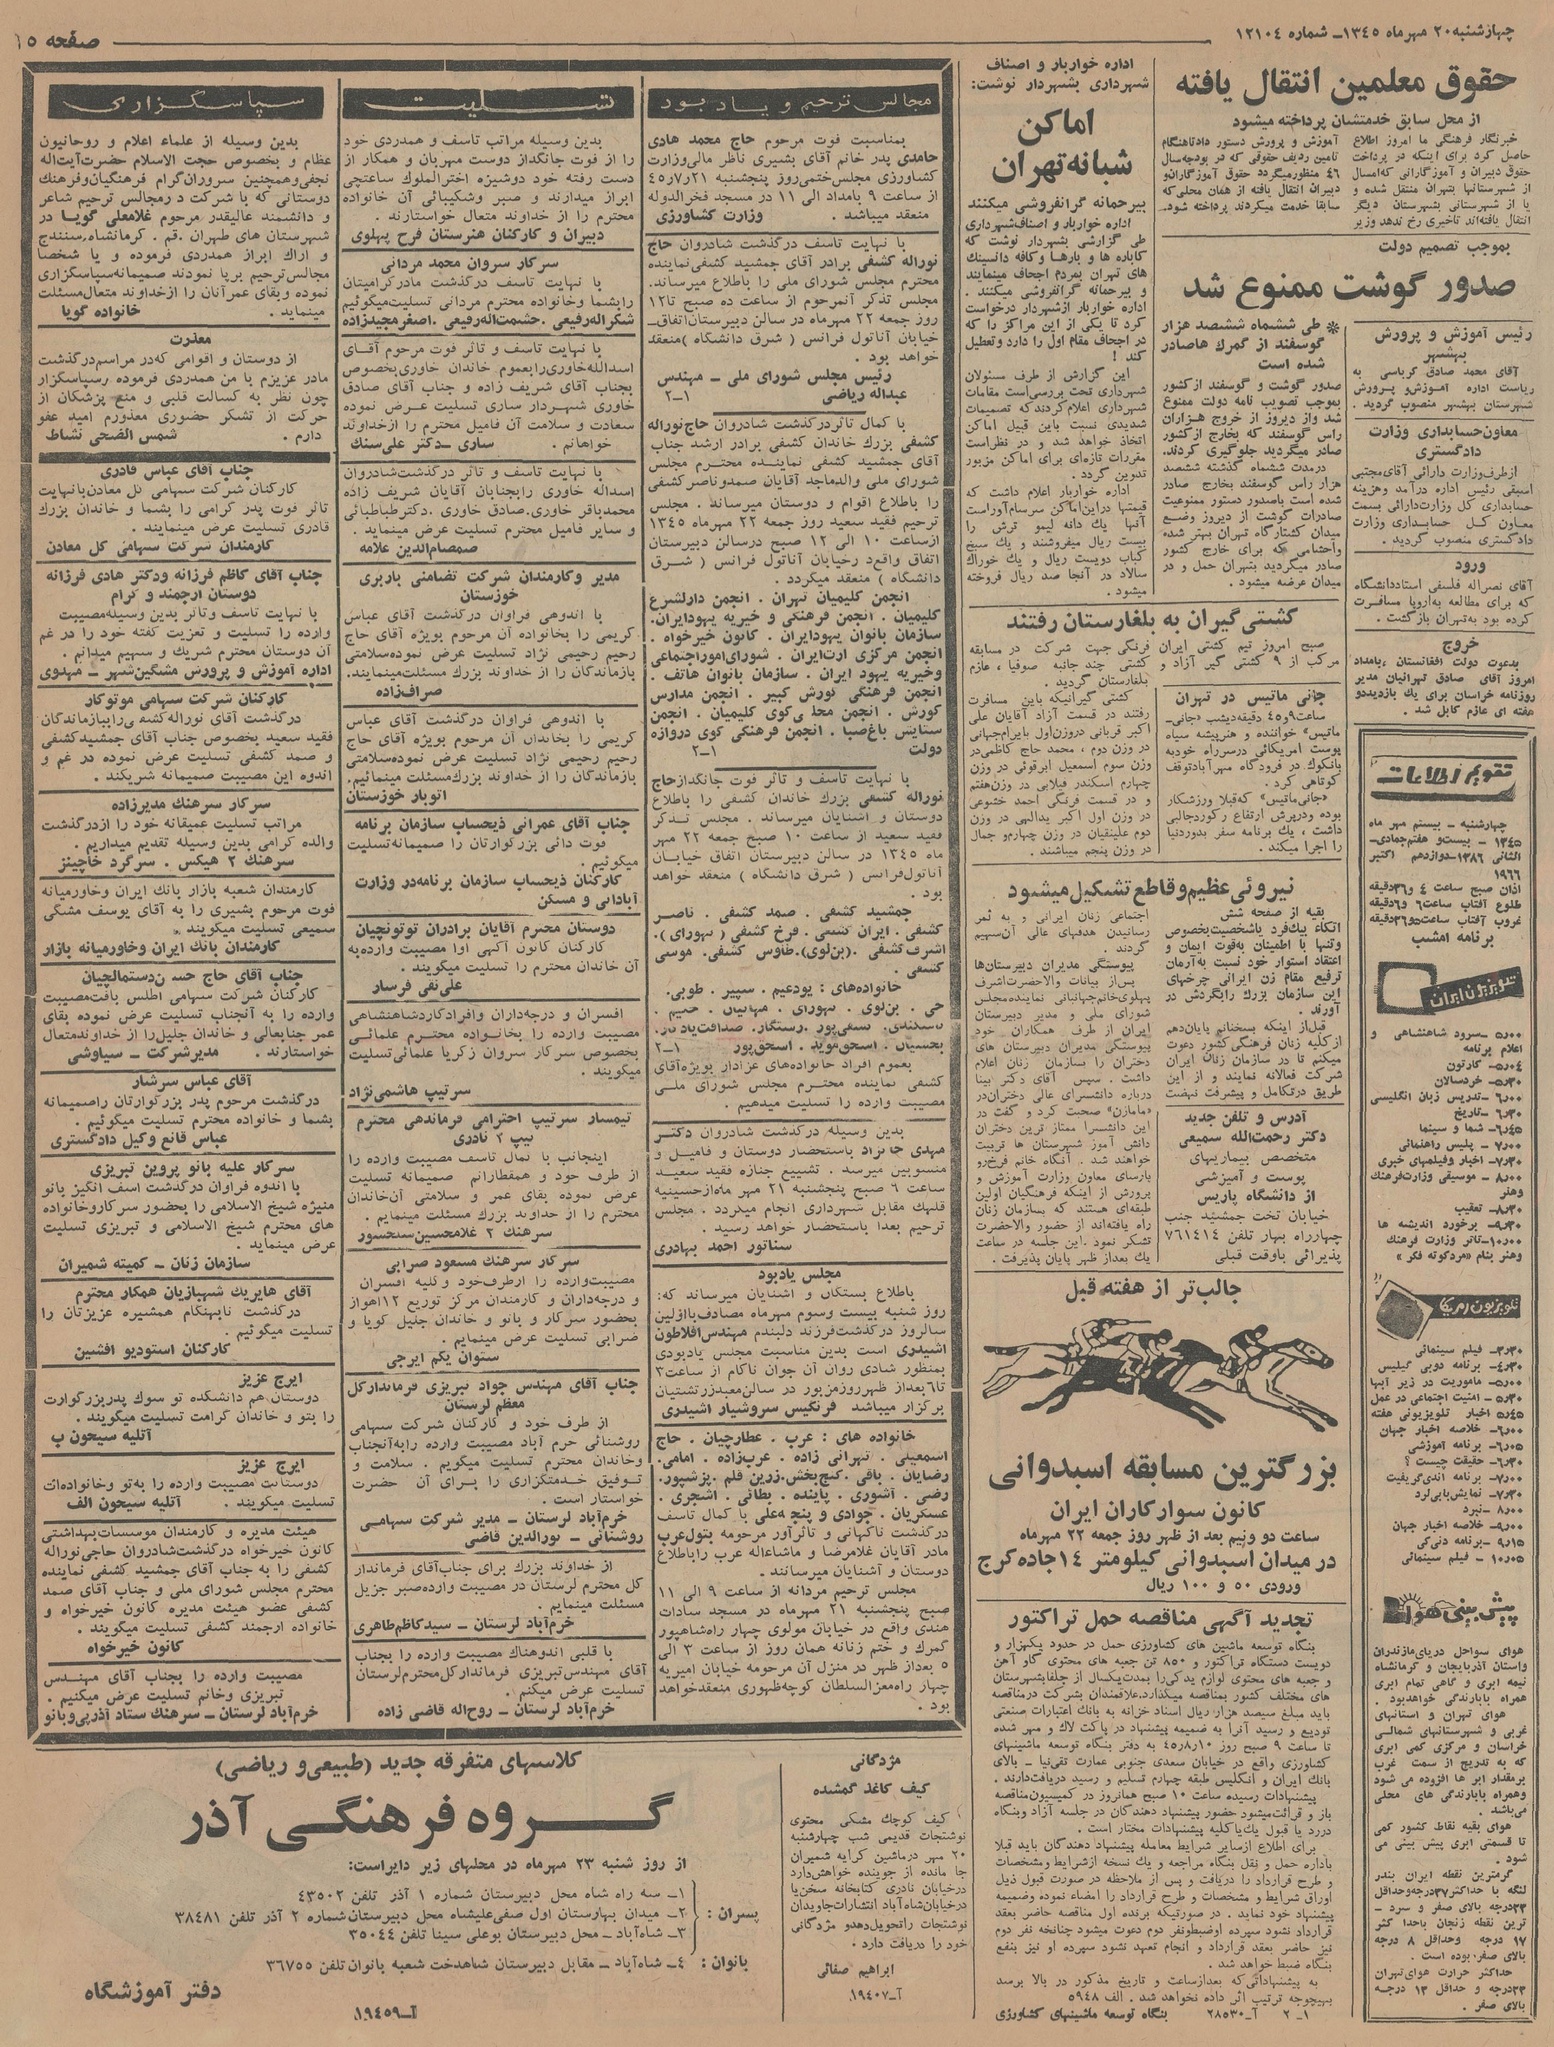 چهارشنبه ۲۰ مهرماه ۱۳۴۵ــ شماره ۱۲۱۰۴
صفحه ۱۵
حقوق معلمین انتقال یافته
از محل سابق خدمتشان پرداخته میشود
خبرنگار فرهنگی ما امروز اطلاع
حاصل کرد برای اینکه در پرداخت
حقوق دبیران و آموزگارانی که امسال
از شهرستانها بتهران منتقل شده و
یا از شهرستانی بشهرستان دیگر
انتقال یافته‌اند تاخیری رخ ندهد وزیر
آموزش و پرورش دستور داد تا هنگام
تامین ردیف حقوقی که در بودجه سال
۴۶ منظور میگردد حقوق آموزگاران و
دبیران انتقال یافته از همان محلی که
سابقا خدمت میکردند پرداخته شود.
بموجب تصمیم دولت
صدور گوشت ممنوع شد
* طی ششماه ششصد هزار
گوسفند از گمرك ها صادر
شده است
صدور گوشت و گوسفند از کشور
بموجب تصویب نامه دولت ممنوع
شد و از دیروز از خروج هزاران
راس گوسفند که بخارج از کشور
صادر میگردید جلوگیری کردند.
در مدت ششماه گذشته ششصد
هزار راس گوسفند بخارج صادر
شده است با صدور دستور ممنوعیت
صادرات گوشت از دیروز وضع
میدان کشتارگاه تهران بهتر شده
و احشامی که برای خارج کشور
صادر میگردید بتهران حمل و در
میدان عرضه میشود.
رئیس آموزش و پرورش
بهشهر
آقای محمد صادق کرباسی به
ریاست اداره آموزش و پرورش
شهرستان بهشهر منصوب گردید.
معاون حسابداری وزارت
دادگستری
از طرف وزارت دارائی آقای مجتبی
اسبقی رئیس اداره درآمد و هزینه
حسابداری کل وزارت دارائی بسمت
معاون کل حسابداری وزارت
دادگستری منصوب گردید.
ورود
آقای نصراله فلسفی استاد دانشگاه
که برای مطالعه به اروپا مسافرت
کرده بود به تهران بازگشت.
خروج
بدعوت دولت افغانستان بامداد
امروز آقای صادق تهرانیان مدیر
روزنامه خراسان برای یك بازدید دو
هفته ای عازم کابل شد.
اداره خواربار و اصناف
شهرداری بشهردار نوشت:
اماکن
شبانه تهران
بیرحمانه گرانفروشی میکنند
اداره خواربار و اصناف شهرداری
طی گزارشی بشهردار نوشت که
کاباره ها و بارها و کافه دانسینگ
های تهران بمردم اجحاف مینمایند
و بیرحمانه گرانفروشی میکنند.
اداره خواربار از شهردار درخواست
کرد تا یکی از این مراکز را که
در اجحاف مقام اول را دارد و تعطیل
کند!
این گزارش از طرف مسئولان
شهرداری تحت بررسی است مقامات
شهرداری اعلام کردند که تصمیمات
شدیدی نسبت باین قبیل اماکن
اتخاذ خواهد شد و در نظر است
مقررات تازه‌ای برای اماکن مزبور
تدوین گردد.
اداره خواربار اعلام داشت که
قیمتها در این اماکن سرسام آور است
آنها یك دانه لیمو ترش را
بیست ریال میفروشند و یك سیخ
کباب دویست ریال و یك خوراك
سالاد در آنجا صد ریال فروخته
میشود.
کشتی گیران به بلغارستان رفتند
صبح امروز تیم کشتی ایران
مرکب از ۹ کشتی گیر آزاد و
فرنگی جهت شرکت در مسابقه
کشتی چند جانبه صوفیا، عازم
بلغارستان گردید.
کشتی گیرانیکه باین مسافرت
رفتند در قسمت آزاد آقایان علی
اکبر قربانی در وزن اول بایرام جهانی
در وزن دوم، محمد حاج کاظمی در
وزن سوم اسمعیل ابرقوئی در وزن
چهارم اسکندر فیلابی در وزن هفتم
و در قسمت فرنگی احمد خشوعی
در وزن اول اکبر یدالهی در وزن
دوم علینقیان در وزن چهارم و جمال
در وزن پنجم میباشند.
جانی ماتیس در تهران
ساعت ۹ و ۴۵ دقیقه دیشب «جانی ــ
ماتیس» خواننده و هنرپیشه سیاه
پوست امریکائی در سر راه خود به
بانکوك در فرودگاه مهرآباد توقف
کوتاهی کرد.
«جانی ماتیس» که قبلا ورزشکار
بوده و در پرش ارتفاع رکورد جالبی
داشت، یك برنامه سفر بدور دنیا
را اجرا میکند.
نیروئی عظیم و قاطع تشکیل میشود
بقیه از صفحه شش
اتکاء یك فرد باشخصیت بخصوص
و تنها با اطمینان به قوت ایمان و
اعتقاد استوار خود نسبت به آرمان
ترفیع مقام زن ایرانی چرخهای
این سازمان بزرك را بگردش در
آورند.
قبل از اینکه بسخنانم پایان دهم
از کلیه زنان فرهنگی کشور دعوت
میکنم تا در سازمان زنان ایران
شرکت فعالانه نمایند و از این
طریق در تکامل و پیشرفت نهضت
اجتماعی زنان ایرانی و به ثمر
رسانیدن هدفهای عالی آن سهیم
گردند.
پیوستگی مدیران دبیرستان‌ها
پس از بیانات والاحضرت اشرف
پهلوی خانم جهانبانی نماینده مجلس
شورای ملی و مدیر دبیرستان
ایران از طرف همکاران خود
پیوستگی مدیران دبیرستان های
دختران را سازمان زنان اعلام
داشت. سپس آقای دکتر بینا
درباره دانشسرای عالی دختران در
«مامازن» صحبت کرد و گفت در
این دانشسرا ممتاز ترین دختران
دانش آموز شهرستان ها تربیت
خواهند شد. آنگاه خانم فرخ‌رو
پارسای معاون وزارت آموزش و
پرورش از اینکه فرهنگیان اولین
طبقه‌ای هستند که بسازمان زنان
راه یافته‌اند از حضور والاحضرت
تشکر نمود. این جلسه در ساعت
یك بعد از ظهر پایان پذیرفت.
آدرس و تلفن جدید
دکتر رحمت‌الله سمیعی
متخصص بیماریهای
پوست و آمیزشی
از دانشگاه پاریس
خیابان تخت جمشید جنب
چهارراه بهار تلفن ۷۶۱۴۱۴
پذیرائی با وقت قبلی
جالب‌تر از هفته قبل
بزرگترین مسابقه اسبدوانی
کانون سوارکاران ایران
ساعت دو و نیم بعد از ظهر روز جمعه ۲۲ مهرماه
در میدان اسبدوانی کیلومتر ۱۴ جاده کرج
ورودی ۵۰ و ۱۰۰ ریال
تجدید آگهی مناقصه حمل تراکتور
بنگاه توسعه ماشین های کشاورزی حمل در حدود یکهزار و
دویست دستگاه تراکتور و ۸۵۰ تن جعبه های محتوی گاو آهن
و جعبه های محتوی لوازم یدکی را بمدت یکسال از جلفا بشهرستان
های مختلف کشور بمناقصه میگذارد. علاقمندان بشرکت در مناقصه
باید مبلغ سیصد هزار ریال اسناد خزانه به بانك اعتبارات صنعتی
تودیع و رسید آنرا به ضمیمه پیشنهاد در پاکت لاك و مهر شده
تا ساعت ۹ صبح روز ۴۵٫۸٫۱۰ به دفتر بنگاه توسعه ماشینهای
کشاورزی واقع در خیابان سعدی جنوبی عمارت تقی‌نیا ــ بالای
بانك ایران و انگلیس طبقه چهارم تسلیم و رسید دریافت دارند.
پیشنهادات رسیده ساعت ۱۰ صبح همانروز در کمیسیون مناقصه
باز و قرائت میشود حضور پیشنهاد دهندگان در جلسه آزاد و بنگاه
در رد یا قبول یك یا کلیه پیشنهادات مختار است.
برای اطلاع از سایر شرایط معامله پیشنهاد دهندگان باید قبلا
باداره حمل و نقل بنگاه مراجعه و یك نسخه از شرایط و مشخصات
و طرح قرارداد را دریافت و پس از ملاحظه در صورت قبول ذیل
اوراق شرایط و مشخصات و طرح قرارداد را امضاء نموده و ضمیمه
پیشنهاد خود نماید. در صورتیکه برنده اول مناقصه حاضر بعقد
قرارداد نشود سپرده او ضبط و نفر دوم دعوت میشود چنانچه نفر دوم
نیز حاضر بعقد قرارداد و انجام تعهد نشود سپرده او نیز بنفع
بنگاه ضبط خواهد شد.
به پیشنهاداتی که بعد از ساعت و تاریخ مذکور در بالا برسد
بهیچوجه ترتیب اثر داده نخواهد شد. الف ۵۹۴۸
۱ــ ۲ آــ۲۸۵۳۰ بنگاه توسعه ماشینهای کشاورزی
تقویم اطلاعات
چهارشنبه ــ بیستم مهر ماه
۱۳۴۵ ــ بیست و هفتم جمادی ــ
الثانی ۱۳۸۶ــ دوازدهم اکتبر
۱۹۶۶
اذان صبح ساعت ۴ و ۳۶ دقیقه
طلوع آفتاب ساعت ۶ و ۶ دقیقه
غروب آفتاب ساعت ۵ و ۳۶ دقیقه
برنامه امشب
تلویزیون ایران
۵٫۰۰ ــ سرود شاهنشاهی و
اعلام برنامه
۵٫۰۴ــ کارتون
۵٫۳۰ــ خردسالان
۶٫۰۰ــ تدریس زبان انگلیسی
۶٫۳۰ــ تاریخ
۶٫۴۵ــ شما و سینما
۷٫۰۰ ــ پلیس راهنمائی
۷٫۳۰ــ اخبار و فیلمهای خبری
۸٫۰۰ ــ موسیقی وزارت فرهنك
وهنر
۸٫۳۰ــ تعقیب
۹٫۳۰ــ برخورد اندیشه ها
۱۰٫۰۰ــ تاتر وزارت فرهنك
وهنر بنام «مرد کوته فکر»
تلویزیون امریکا
۳٫۳۰ــ فیلم سینمائی
۴٫۳۰ــ برنامه دوبی گیلیس
۵٫۰۰ــ ماموریت در زیر آبها
۵٫۳۰ــ امنیت اجتماعی در عمل
۵٫۴۵ اخبار تلویزیونی هفته
۶٫۰۰ــ خلاصه اخبار جهان
۶٫۰۵ــ برنامه آموزشی
۶٫۳۰ــ حقیقت چیست؟
۷٫۰۰ــ برنامه اندی گریفیت
۷٫۳۰ــ نمایش بابی‌لرد
۸٫۰۰ــ نبرد
۹٫۰۰ــ خلاصه اخبار جهان
۹٫۱۵ــ برنامه دنی‌کی
۱۰٫۰۵ــ فیلم سینمائی
پیش بینی هوا
هوای سواحل دریای مازندران
و استان آذربایجان و کرمانشاه
نیمه ابری و گاهی تمام ابری
همراه با بارندگی خواهد بود.
هوای تهران و استانهای
غربی و شهرستانهای شمالی
خراسان و مرکزی کمی ابری
که به تدریج از سمت غرب
بر مقدار ابر ها افزوده می شود
و همراه با بارندگی های محلی
می‌باشد.
هوای بقیه نقاط کشور کمی
تا قسمتی ابری پیش بینی می
شود.
گرمترین نقطه ایران بندر
لنگه با حداکثر ۳۷ درجه و حداقل
۲۳ درجه بالای صفر و سرد ــ
ترین نقطه زنجان با حدا کثر
۱۷ درجه و حداقل ۸ درجه
بالای صفر بوده است.
حداکثر حرارت هوای تهران
۲۳ درجه و حداقل ۱۳ درجه
بالای صفر.
مجالس ترحیم و یادبود
بمناسبت فوت مرحوم حاج محمد هادی
حامدی پدر خانم آقای بشیری ناظر مالی وزارت
کشاورزی مجلس ختمی روز پنجشنبه ۴۵٫۷٫۲۱
از ساعت ۹ بامداد الی ۱۱ در مسجد فخرالدوله
منعقد میباشد. وزارت کشاورزی
با نهایت تاسف درگذشت شادروان حاج
نوراله کشفی برادر آقای جمشید کشفی نماینده
محترم مجلس شورای ملی را باطلاع میرساند.
مجلس تذکر آنمرحوم از ساعت ده صبح تا ۱۲
روز جمعه ۲۲ مهرماه در سالن دبیرستان اتفاق ــ
خیابان آناتول فرانس (شرق دانشگاه) منعقد
خواهد بود.
رئیس مجلس شورای ملی ــ مهندس
عبداله ریاضی ۲ــ۱
با کمال تاثر درگذشت شادروان حاج نوراله
کشفی بزرك خاندان کشفی برادر ارشد جناب
آقای جمشید کشفی نماینده محترم مجلس
شورای ملی و الدماجد آقایان صمد و ناصر کشفی
را باطلاع اقوام و دوستان میرساند. مجلس
ترحیم فقید سعید روز جمعه ۲۲ مهرماه ۱۳۴۵
از ساعت ۱۰ الی ۱۲ صبح در سالن دبیرستان
اتفاق واقع در خیابان آناتول فرانس (شرق
دانشگاه) منعقد میگردد.
انجمن کلیمیان تهران. انجمن دارلشرع
کلیمیان. انجمن فرهنگی و خیریه یهود ایران.
سازمان بانوان یهود ایران. کانون خیرخواه.
انجمن مرکزی ارت ایران. شورای امور اجتماعی
و خیریه یهود ایران. سازمان بانوان هاتف.
انجمن فرهنگی کورش کبیر. انجمن مدارس
کورش. انجمن محلی کوی کلیمیان. انجمن
ستایش باغ صبا. انجمن فرهنگی کوی دروازه
دولت ۲ــ۱
با نهایت تاسف و تاثر فوت جانگداز حاج
نوراله کشفی بزرك خاندان کشفی را باطلاع
دوستان و آشنایان میرساند. مجلس تذکر
فقید سعید از ساعت ۱۰ صبح جمعه ۲۲ مهر
ماه ۱۳۴۵ در سالن دبیرستان اتفاق خیابان
آناتول فرانس (شرق دانشگاه) منعقد خواهد
بود.
جمشید کشفی. صمد کشفی. ناصر
کشفی. ایران کشفی. فرخ کشفی (نهورای).
اشرف کشفی. (بن‌لوی). طاوس کشفی. موسی
کشفی.
خانواده‌های: یودعیم. سپیر. طوبی.
حی. بن‌لوی. نهورای. مهبانیان. حلیم.
بعموم افراد خانواده‌های عزادار بویژه آقای
کشفی نماینده محترم مجلس شورای ملی
مصیبت وارده را تسلیت میدهیم.
بدین وسیله درگذشت شادروان دکتر
مهدی جانزاد باستحضار دوستان و فامیل و
منسوبین میرسد. تشییع جنازه فقید سعید
ساعت ۶ صبح پنجشنبه ۲۱ مهر ماه از حسینیه
قلهك مقابل شهرداری انجام میگردد. مجلس
ترحیم بعدا باستحضار خواهد رسید.
سناتور احمد بهادری
مجلس یادبود
باطلاع بستگان و آشنایان میرساند که:
روز شنبه بیست و سوم مهرماه مصادف با اولین
سالروز درگذشت فرزند دلبندم مهندس افلاطون
اشیدری است بدین مناسبت مجلس یادبودی
بمنظور شادی روان آن جوان ناکام از ساعت ۳
تا ۶ بعد از ظهر روز مزبور در سالن معبد زرتشتیان
برگزار میباشد فرنگیس سروشیار اشیدری
خانواده های: عرب. عطارچیان. حاج
اسمعیلی. تهرانی زاده. عرب‌زاده. امامی.
رضایان. باقی. گنج‌بخش. زرین قلم. پزشپور.
رضی. آشوری. پاینده. بطائی. اشجری.
عسکریان. جوادی و پنجه‌علی با کمال تاسف
درگذشت ناگهانی و تاثرآور مرحومه بتول عرب
مادر آقایان غلامرضا و ماشاءاله عرب را باطلاع
دوستان و آشنایان میرسانند.
مجلس ترحیم مردانه از ساعت ۹ الی ۱۱
صبح پنجشنبه ۲۱ مهرماه در مسجد سادات
هندی واقع در خیابان مولوی چهار راه شاهپور
گمرك و ختم زنانه همان روز از ساعت ۳ الی
۵ بعد از ظهر در منزل آن مرحومه خیابان امیریه
چهار راه معزالسلطان کوچه ظهوری منعقد خواهد
بود.
تسلیت
بدین وسیله مراتب تاسف و همدردی خود
را از فوت جانگداز دوست مهربان و همکار از
دست رفته خود دوشیزه اخترالملوك ساعتچی
ابراز میدارند و صبر و شکیبائی آن خانواده
محترم را از خداوند متعال خواستارند.
دبیران و کارکنان هنرستان فرح پهلوی
سرکار سروان محمد مردانی
با نهایت تاسف درگذشت مادر گرامیتان
را بشما و خانواده محترم مردانی تسلیت میگوئیم
شکراله رفیعی. حشمت‌اله رفیعی. اصغر مجیدزاده
با نهایت تاسف و تاثر فوت مرحوم آقای
اسدالله خاوری را بعموم خاندان خاوری بخصوص
بجناب آقای شریف زاده و جناب آقای صادق
خاوری شهردار ساری تسلیت عرض نموده
سعادت و سلامت آن فامیل محترم را از خداوند
خواهانم. ساری ــ دکتر علی‌سنك
با نهایت تاسف و تاثر درگذشت شادروان
اسداله خاوری را بجنابان آقایان شریف زاده
محمدباقر خاوری. صادق خاوری. دکتر طباطبائی
و سایر فامیل محترم تسلیت عرض مینماید.
صمصام‌الدین علامه
مدیر و کارمندان شرکت تضامنی باربری
خوزستان
با اندوهی فراوان درگذشت آقای عباس
کریمی را بخانواده آن مرحوم بویژه آقای حاج
رحیم رحیمی نژاد تسلیت عرض نموده سلامتی
بازماندگان را از خداوند بزرك مسئلت مینمایند.
صراف‌زاده
با اندوهی فراوان درگذشت آقای عباس
کریمی را بخاندان آن مرحوم بویژه آقای حاج
رحیم رحیمی نژاد تسلیت عرض نموده سلامتی
بازماندگان را از خداوند بزرك مسئلت مینمائیم.
اتوبار خوزستان
جناب آقای عمرانی ذیحساب سازمان برنامه
فوت دائی بزرگوارتان را صمیمانه تسلیت
میگوئیم.
کارکنان ذیحساب سازمان برنامه در وزارت
آبادانی و مسکن
دوستان محترم آقایان برادران توتونچیان
کارکنان کانون آگهی آوا مصیبت وارده به
آن خاندان محترم را تسلیت میگویند.
علی‌نقی فرسار
افسران و درجه‌داران و افراد گارد شاهنشاهی
مصیبت وارده را بخانواده محترم علمائی
بخصوص سرکار سروان زکریا علمائی تسلیت
میگویند.
سرتیپ هاشمی‌نژاد
تیمسار سرتیپ احترامی فرماندهی محترم
تیپ ۲ نادری
اینجانب با کمال تاسف مصیبت وارده را
از طرف خود و همقطارانم صمیمانه تسلیت
عرض نموده بقای عمر و سلامتی آن خاندان
محترم را از خداوند بزرك مسئلت مینمایم.
سرهنك ۲ غلامحسین سنجسور
سرکار سرهنك مسعود صرابی
مصیبت وارده را از طرف خود و کلیه افسران
و درجه‌داران و کارمندان مرکز توزیع ۱۲ اهواز
بحضور سرکار و بانو و خاندان جلیل گویا و
ضرابی تسلیت عرض مینمایم.
ستوان یکم ایرجی
جناب آقای مهندس جواد تبریزی فرماندار کل
معظم لرستان
از طرف خود و کارکنان شرکت سهامی
روشنائی خرم آباد مصیبت وارده را به آنجناب
و خاندان محترم تسلیت میگویم. سلامت و
توفیق خدمتگزاری را برای آن حضرت
خواستار است.
خرم‌آباد لرستان ــ مدیر شرکت سهامی
روشنائی ــ نورالدین قاضی
از خداوند بزرك برای جناب آقای فرماندار
کل محترم لرستان در مصیبت وارده صبر جزیل
مسئلت مینمایم.
خرم‌آباد لرستان ــ سید کاظم طاهری
با قلبی اندوهناك مصیبت وارده را بجناب
آقای مهندس تبریزی فرماندار کل محترم لرستان
تسلیت عرض میکنم.
خرم‌آباد لرستان ــ روح‌اله قاضی زاده
سپاسگزاری
بدین وسیله از علماء اعلام و روحانیون
عظام و بخصوص حجت الاسلام حضرت آیت‌اله
نجفی و همچنین سروران گرام فرهنگیان و فرهنك
دوستانی که با شرکت در مجالس ترحیم شاعر
و دانشمند عالیقدر مرحوم غلامعلی گویا در
شهرستان های طهران. قم. کرمانشاه. سنندج
و اراك ابراز همدردی فرموده و یا شخصا
مجالس ترحیم برپا نمودند صمیمانه سپاسگزاری
نموده و بقای عمر آنان را از خداوند متعال مسئلت
مینماید. خانواده گویا
معذرت
از دوستان و اقوامی که در مراسم درگذشت
مادر عزیزم با من همدردی فرموده و سپاسگزار
چون نظر به کسالت قلبی و منع پزشکان از
حرکت از تشکر حضوری معذورم امید عفو
دارم. شمس الضحی نشاط
جناب آقای عباس قادری
کارکنان شرکت سهامی کل معادن با نهایت
تاثر فوت پدر گرامی را بشما و خاندان بزرك
قادری تسلیت عرض مینمایند.
کارمندان شرکت سهامی کل معادن
جناب آقای کاظم فرزانه و دکتر هادی فرزانه
دوستان ارجمند و گرام
با نهایت تاسف و تاثر بدین وسیله مصیبت
وارده را تسلیت و تعزیت گفته خود را در غم
آن دوستان محترم شریك و سهیم میدانم.
اداره آموزش و پرورش مشگین‌شهر ــ مهدوی
کارکنان شرکت سهامی موتوکار
درگذشت آقای نوراله کشفی را ببازماندگان
فقید سعید بخصوص جناب آقای جمشید کشفی
و صمد کشفی تسلیت عرض نموده در غم و
اندوه این مصیبت صمیمانه شریکند.
سرکار سرهنك مدیرزاده
مراتب تسلیت عمیقانه خود را از درگذشت
والده گرامی بدین وسیله تقدیم میداریم.
سرهنك ۲ هیکس. سرگرد خاچینز
کارمندان شعبه بازار بانك ایران و خاورمیانه
فوت مرحوم بشیری را به آقای یوسف مشگی
سمیعی تسلیت میگویند.
کارمندان بانك ایران و خاورمیانه بازار
جناب آقای حاج حسن دستمالچیان
کارکنان شرکت سهامی اطلس بافت مصیبت
وارده را به آنجناب تسلیت عرض نموده بقای
عمر جنابعالی و خاندان جلیل را از خداوند متعال
خواستارند. مدیر شرکت ــ سیاوشی
آقای عباس سرشار
درگذشت مرحوم پدر بزرگوارتان را صمیمانه
بشما و خانواده محترم تسلیت میگوئیم.
عباس قانع وکیل دادگستری
سرکار علیه بانو پروین تبریزی
با اندوه فراوان درگذشت اسف انگیز بانو
منیژه شیخ الاسلامی را بحضور سرکار و خانواده
های محترم شیخ الاسلامی و تبریزی تسلیت
عرض مینماید.
سازمان زنان ــ کمیته شمیران
آقای هایریك شهبازیان همکار محترم
درگذشت نابهنگام همشیره عزیزتان را
تسلیت میگوئیم.
کارکنان استودیو افشین
ایرج عزیز
دوستان هم دانشکده تو سوك پدر بزرگوارت
را بتو و خاندان گرامت تسلیت میگویند.
آتلیه سیحون ب
ایرج عزیز
دوستانت مصیبت وارده را به تو و خانواده‌ات
تسلیت میگویند. آتلیه سیحون الف
هیئت مدیره و کارمندان موسسات بهداشتی
کانون خیرخواه درگذشت شادروان حاجی نوراله
کشفی را به جناب آقای جمشید کشفی نماینده
محترم مجلس شورای ملی و جناب آقای صمد
کشفی عضو هیئت مدیره کانون خیرخواه و
خانواده ارجمند کشفی تسلیت میگویند.
کانون خیرخواه
مصیبت وارده را بجناب آقای مهندس
تبریزی و خانم تسلیت عرض میکنیم.
خرم‌آباد لرستان ــ سرهنك ستاد آذرپی و بانو
مژدگانی
کیف کاغذ گمشده
کیف کوچك مشکی محتوی
نوشتجات قدیمی شب چهارشنبه
۲۰ مهر در ماشین کرایه شمیران
جا مانده از جوینده خواهش دارد
در خیابان نادری کتابخانه سخن یا
در خیابان شاه‌آباد انتشارات جاویدان
نوشتجات را تحویل دهد و مژدگانی
خود را دریافت دارد.
ابراهیم صفائی
آــ۱۹۴۰۷
کلاسهای متفرقه جدید (طبیعی و ریاضی)
گروه فرهنگی آذر
از روز شنبه ۲۳ مهرماه در محلهای زیر دایر است:
پسران:
۱ــ سه راه شاه محل دبیرستان شماره ۱ آذر تلفن ۴۳۵۰۲
۲ــ میدان بهارستان اول صفی‌علیشاه محل دبیرستان شماره ۲ آذر تلفن ۳۸۴۸۱
۳ــ شاه‌آباد ــ محل دبیرستان بوعلی سینا تلفن ۳۵۰۴۴
بانوان: ۴ــ شاه‌آباد ــ مقابل دبیرستان شاهدخت شعبه بانوان تلفن ۳۶۷۵۵
دفتر آموزشگاه
آــ۱۹۴۵۹